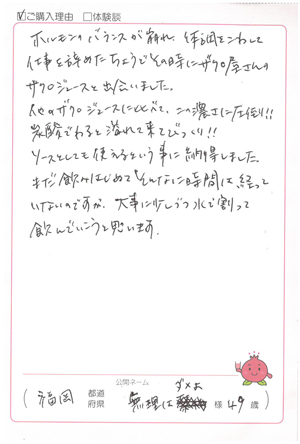 ☑ご購入理由 □体験談
ホルモンのバランスが崩れ、体調をこわして
仕事を辞めたちょうどその時にザクロ屋さんの
ザクロジュースと出会いました。
他のザクロジュースにくらべて、この濃さに圧倒!!
炭酸でわると溢れて来てびっくり!!
ソースとしても使えるという事に納得しました。
まだ飲みはじめてそんなに時間は経って
いないのですが、大事に少しづつ水で割って
飲んでいこうと思います。
公開ネーム
(福岡 都道府県 無理はダメよ 様 49歳)